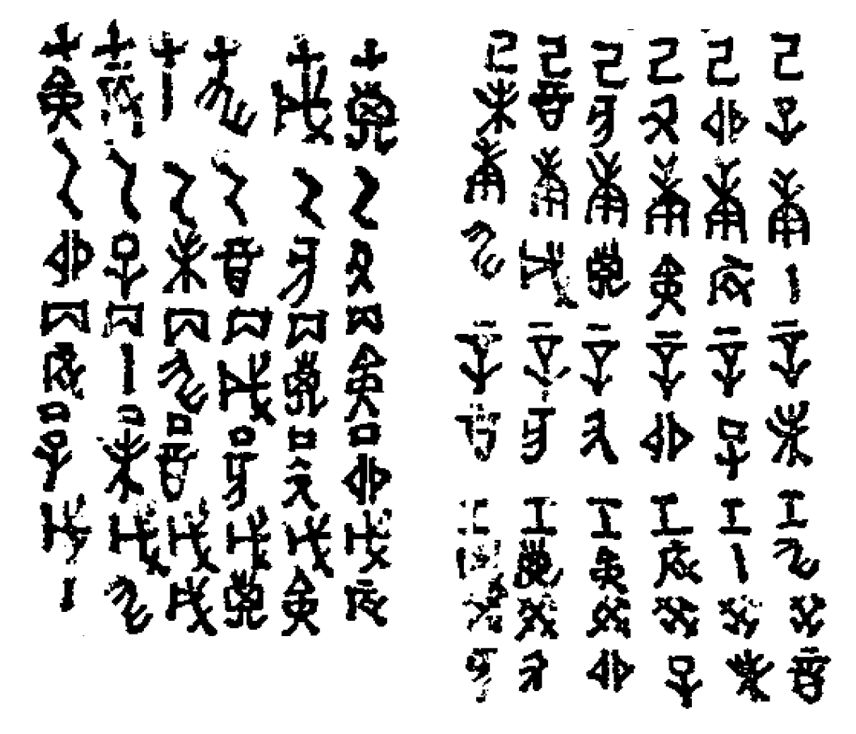 甲子乙丑丙寅丁卯戊辰
甲戌乙亥丙子丁丑戊寅
甲申乙酉丙戌丁亥戊子
甲午乙未丙申丁酉戊戌
甲辰乙巳丙午丁未戊申
甲寅乙卯丙辰丁巳戊午
己巳庚午辛未壬申癸酉
己卯庚辰辛巳壬午癸未
己丑庚寅辛卯壬辰癸巳
己亥庚子辛丑壬寅癸卯
己酉庚戌辛亥壬子癸丑
己未庚申辛酉壬戌癸亥